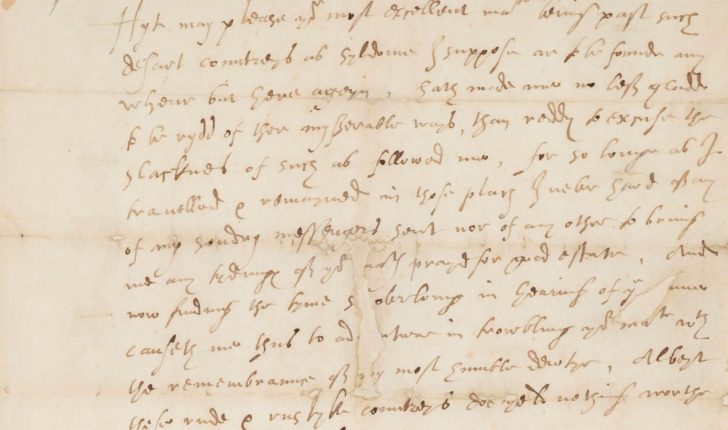 Hyt may please yor most excellent matie being past such
desart countreys as syldome I suppose are to be founde any
where but here ageyn, hath made me no less gladd
to be rydd of there myserable ways, than reddy to excuse the
slacknes of such as followed me, for so longe as I
travelled & remayned in those places I never hard of any
of my sondry messengers sent nor of any other to bring
me any tydings of yor prayed for good estate, And
now finding the tyme overlong in hearing of
causeth me thus to in trowbling yor matie wth
the remembrance of my most humble dewtye, Albeyt
these rude & countreys nothing worthe